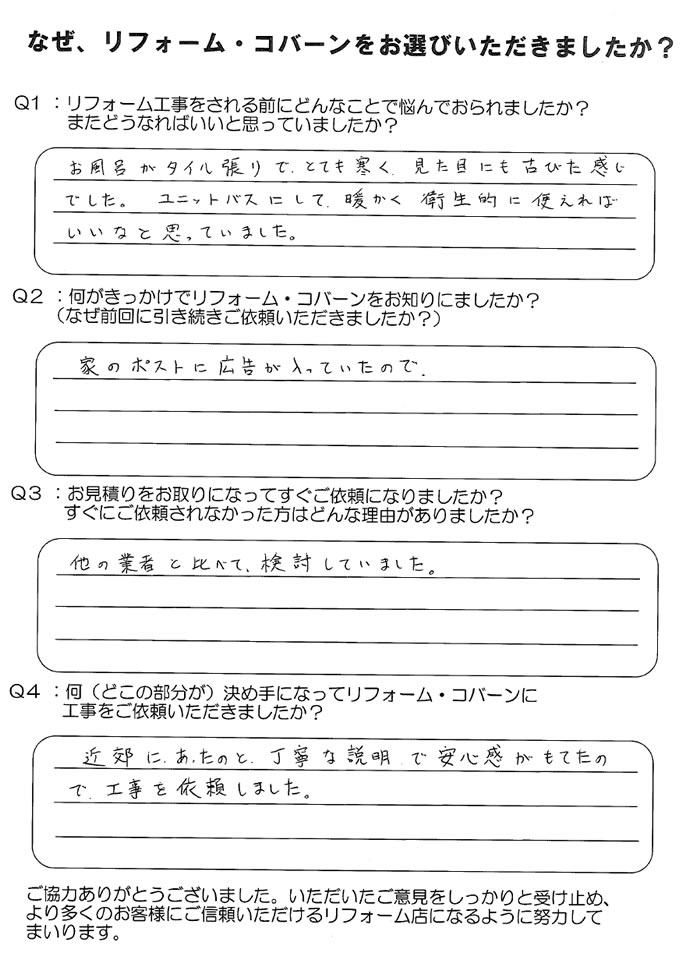 なぜ、リフォーム・コバーンをお選びいただきましたか？
Q1 ：リフォーム工事をされる前にどんなことで悩んでおられましたか？
またどうなればいいと思っていましたか？
お風呂がタイル張りで、とても寒く、見た目にも古びた感じ
でした。 ユニットバスにして、暖かく 衛生的に使えれば
いいなと思っていました。
Q2 ：何がきっかけでリフォーム・コバーンをお知りにましたか？
（なぜ前回に引き続きご依頼いただきましたか？）
家のポストに広告が入っていたので、
Q3 ：お見積りをお取りになってすぐご依頼になりましたか？
すぐにご依頼されなかった方はどんな理由がありましたか？
他の業者と比べて、検討していました。
Q4 ：何（どこの部分が）決め手になってリフォーム・コバーンに
工事をご依頼いただきましたか？
近郊に、あったのと、丁寧な説明、で安心感がもてたの
で、工事を依頼しました。
ご協力ありがとうございました。いただいたご意見をしっかりと受け止め、
より多くのお客様にご信頼いただけるリフォーム店になるように努力して
まいります。